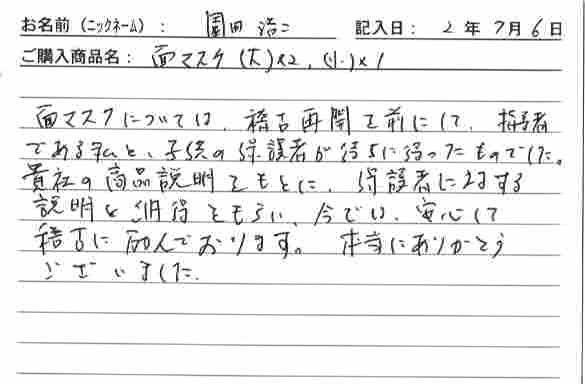 お名前（ニックネーム）： 園田 浩二 記入日： 2年 7月 6日
ご購入商品名： 面マスク（大）×2，（小）×1
面マスクについては、稽古再開を前にして、指導者
である私と、子供の保護者が待ちに待ったものでした。
貴社の商品説明をもとに、保護者に対する
説明も納得をもらい、今では、安心して
稽古に励んでおります。本当にありがとう
ございました。